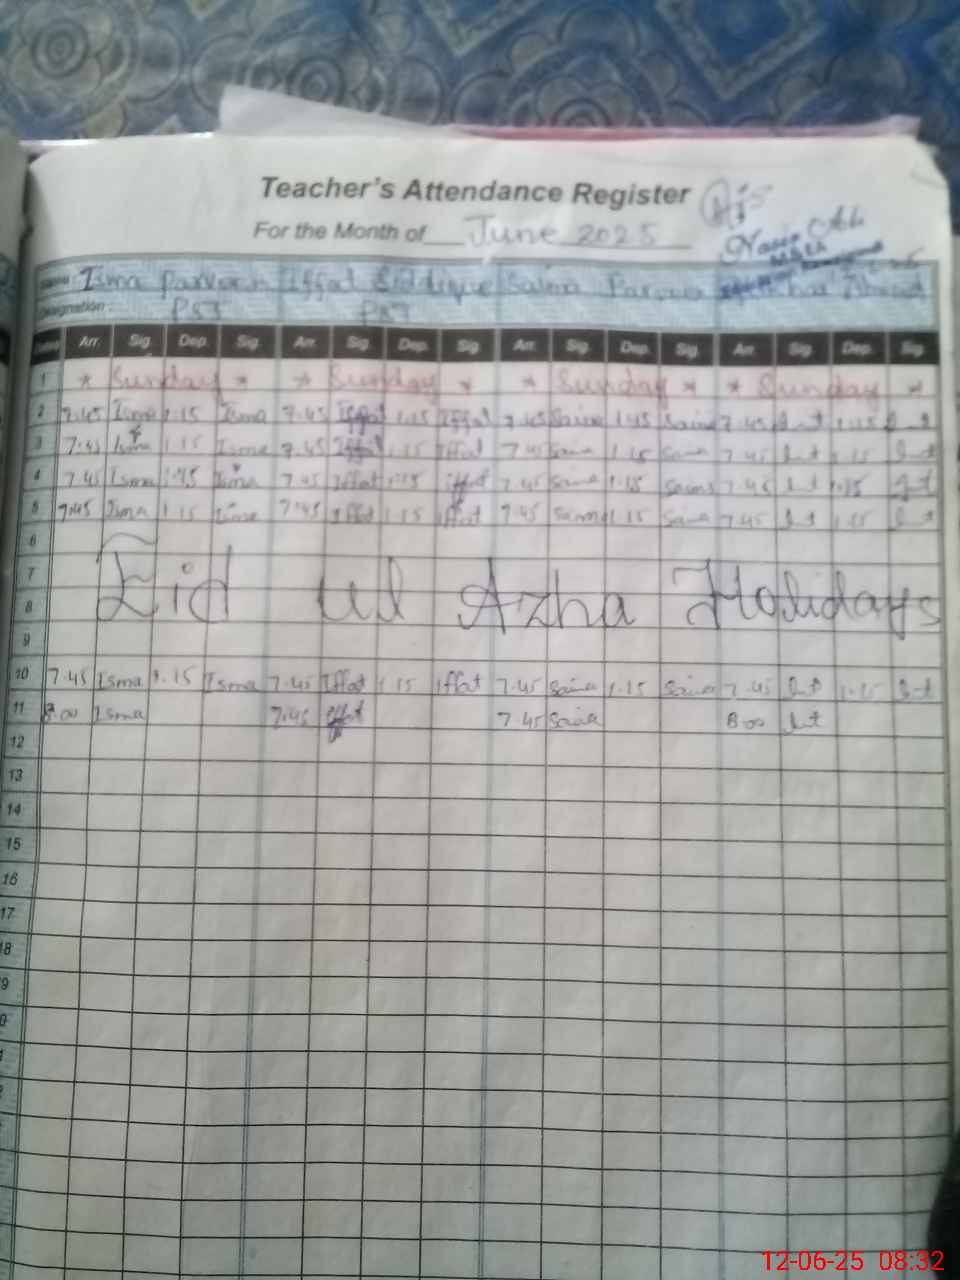 Teacher's Attendance Register
For the Month of June 2025
Name: Isma Parveen Iffat Siddique Saima Parveen Ahmad
Designation: PST PST
Arr. Sig. Dep. Sig. Arr. Sig. Dep. Sig. Arr. Sig. Dep. Sig. Arr. Sig. Dep. Sig.
1 * Sunday * * Sunday * * Sunday * * Sunday *
2 7.45 Isma 1.15 Isma 7.45 Iffat 1.15 Iffat 7.45 Saima 1.15 Saima 7.45 1.15
3 7.45 Isma 1.15 Isma 7.45 Iffat 1.15 Iffat 7.45 Saima 1.15 Saima 7.45 1.15
4 7.45 Isma 1.15 Isma 7.45 Iffat 1.15 Iffat 7.45 Saima 1.15 Saima 7.45 1.15
5 7.45 Isma 1.15 Isma 7.45 Iffat 1.15 Iffat 7.45 Saima 1.15 Saima 7.45 1.15
6
7
Eid ul Azha Holidays
8
9
10 7.45 Isma 1.15 Isma 7.45 Iffat 1.15 Iffat 7.45 Saima 1.15 Saima 7.45 1.15
11 8.00 Isma 7.45 Iffat 7.45 Saima 8.00
12
13
14
15
16
17
18
9
0
12-06-25 08:32